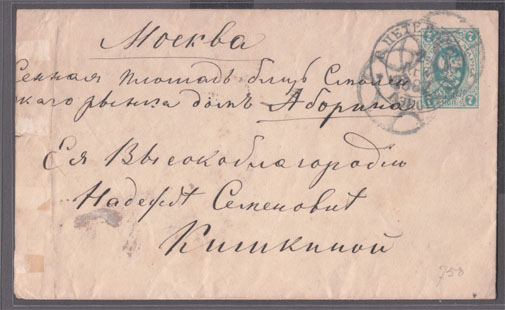 Москва
Сенная площадь близь Смол
скаго рынка домъ Аборина
Ея Высокоблагородію
Надеждѣ Семеновнѣ
Кишкиной
7 7
7 7
758